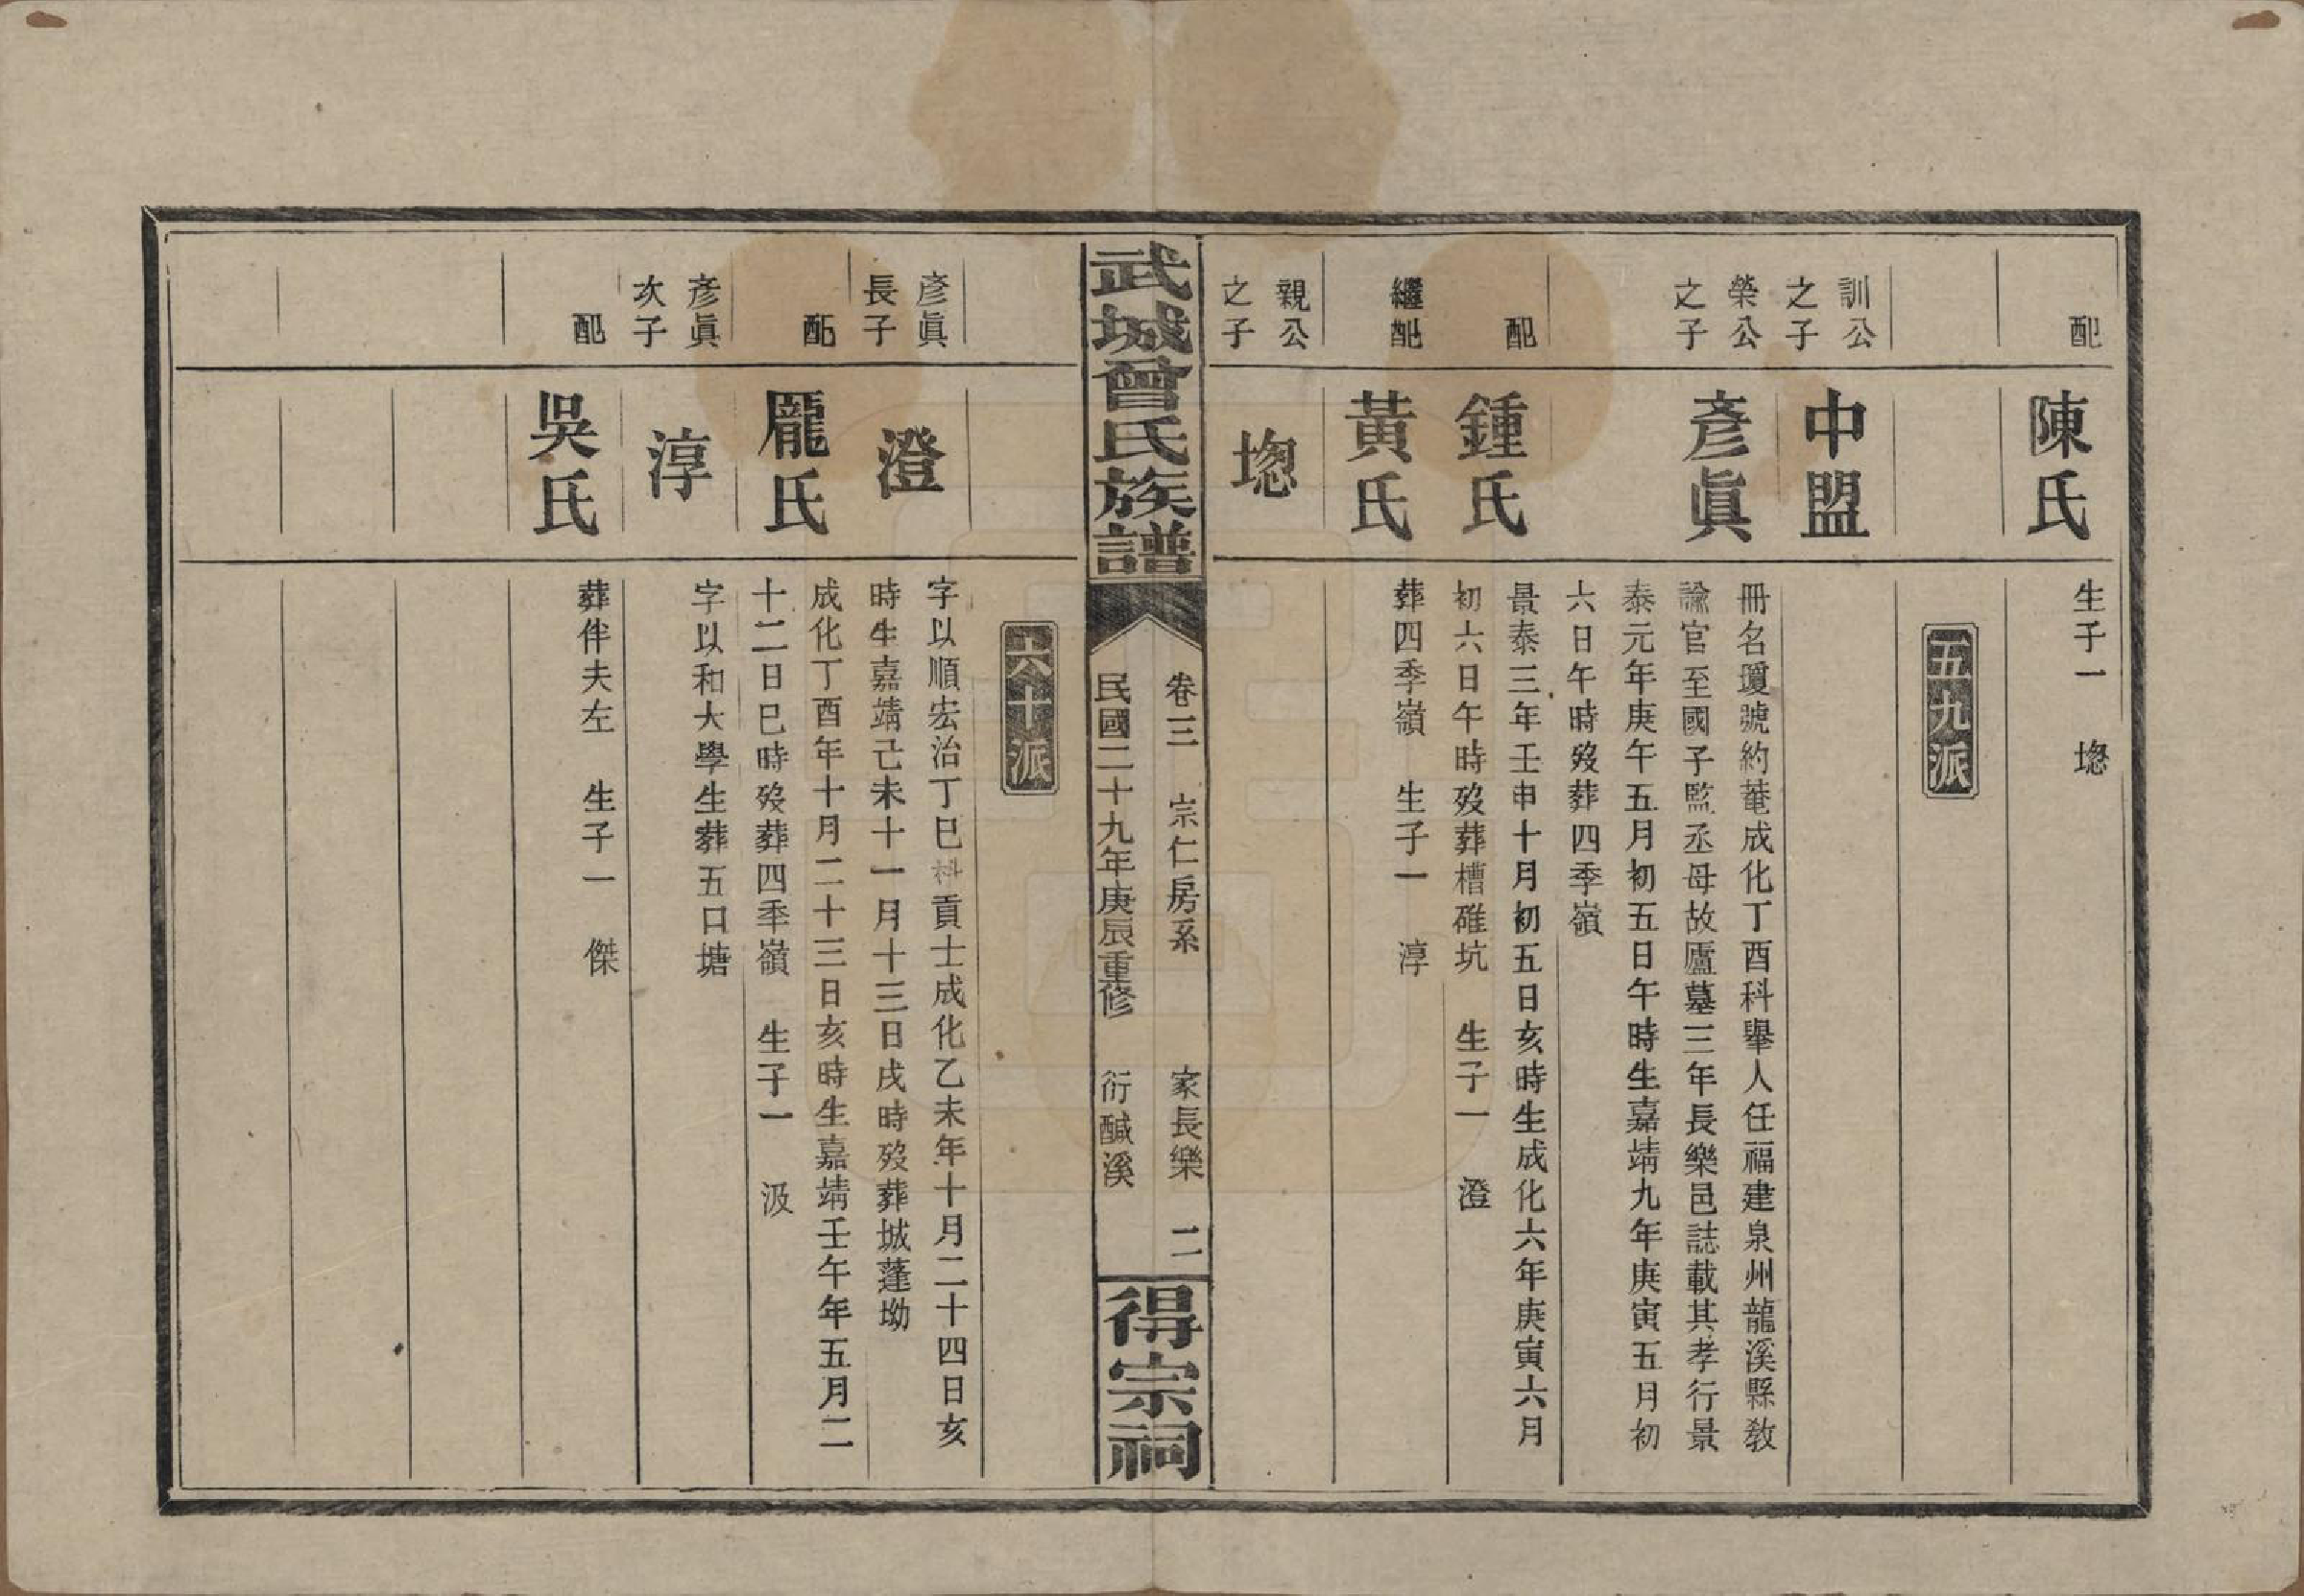 配
陳氏
生子一　塄
五九派
訓公
之子
中盟
榮公
之子
彥眞
冊名瓊號約菴成化丁酉科舉人任福建泉州龍溪縣教
諭官至國子監丞母故廬墓三年長樂邑誌載其孝行景
泰元年庚午五月初五日午時生嘉靖九年庚寅五月初
六日午時歿葬四季嶺
配
鍾氏
景泰三年壬申十月初五日亥時生成化六年庚寅六月
初六日午時歿葬槽碓坑　生子一　澄
繼配
黃氏
葬四季嶺　生子一　淳
親公
之子
武城曾氏族譜
卷三　宗仁房系　家長樂　二
民國二十九年庚辰重修　衍醎溪
得宗祠
六十派
彥眞
長子
澄
字以順宏治丁巳科貢士成化乙未年十月二十四日亥
時生嘉靖己未十一月十三日戌時歿葬城蓬坳
配
龎氏
成化丁酉年十月二十三日亥時生嘉靖壬午年五月二
十二日巳時歿葬四季嶺　生子一　汲
彥眞
次子
淳
字以和大學生葬五口塘
配
吳氏
葬伴夫左　生子一　傑